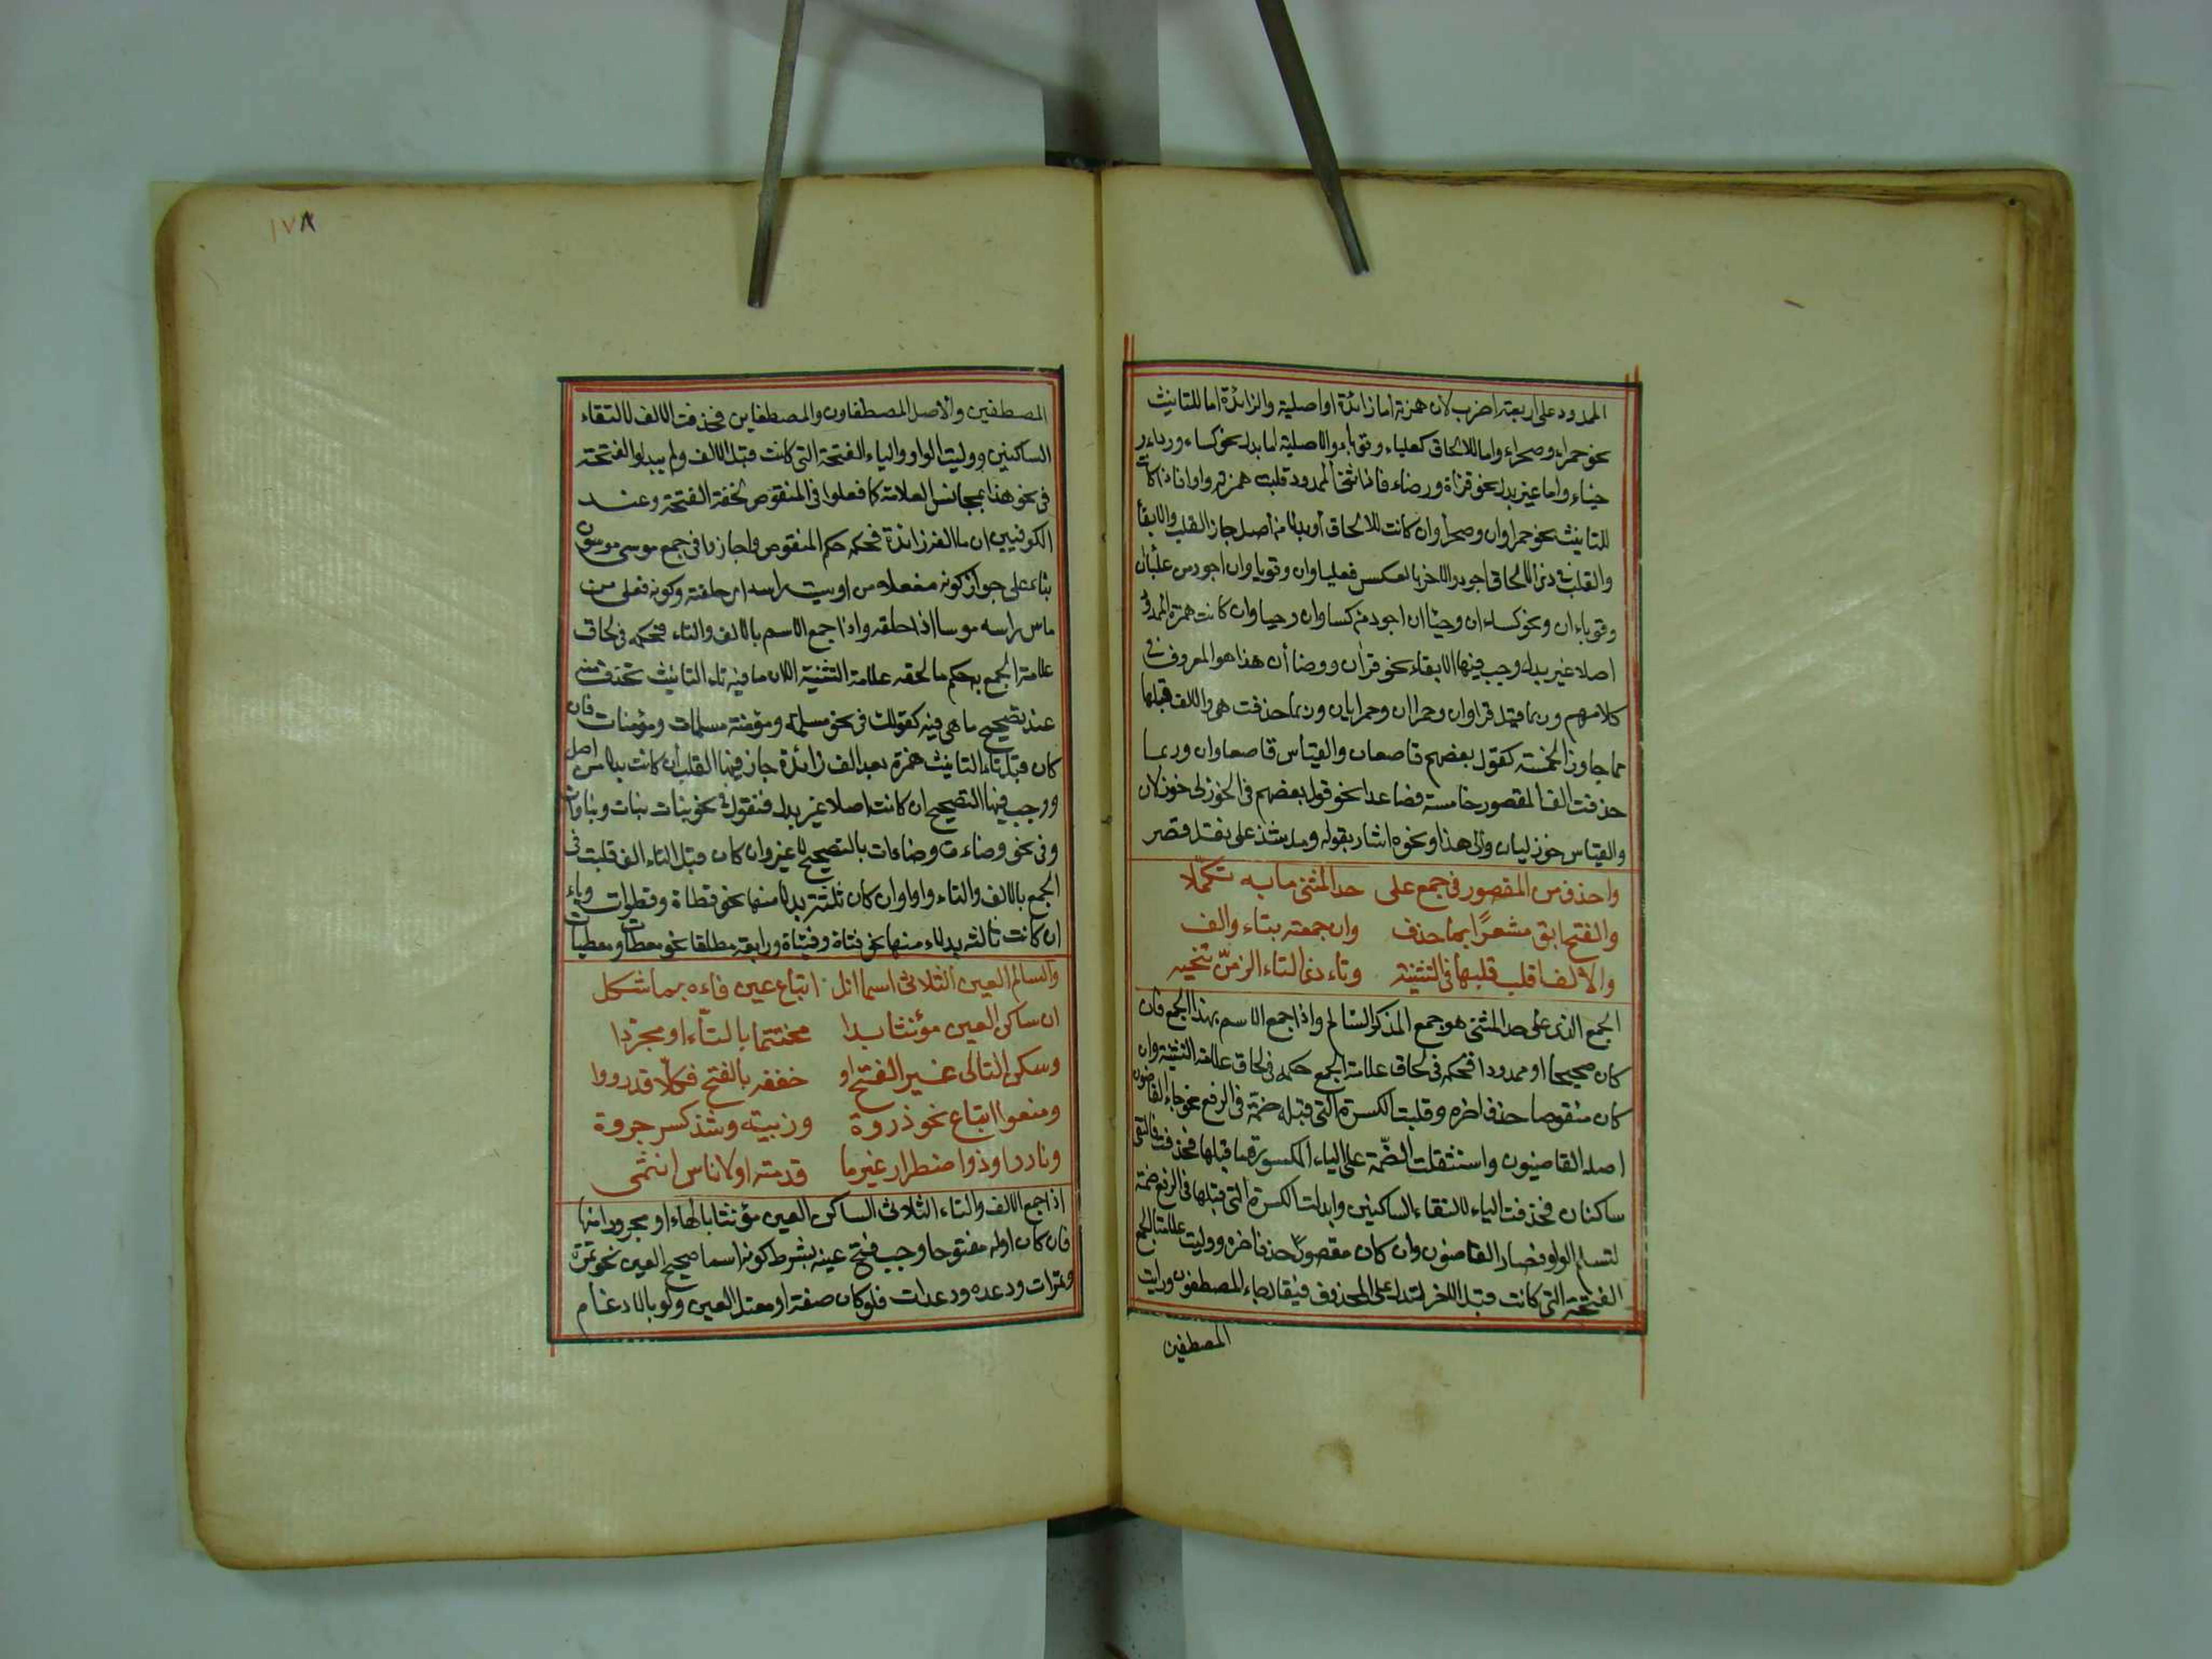 الممدود على اربعة اضرب لان همزته اما زائدة او اصلية والزائدة اما للتانيث
نحو حمراء وصحراء واما للالحاق كعلباء وقوباء والاصلية اما بدل نحو كساء ورداء و
حياء واما غير بدل نحو قراء ووضاء فاذا ثنى الممدود قلبت همزته واوا ان كانت
للتانيث نحو حمراوان وصحراوان وان كانت للالحاق او بدلا من اصل جاز القلب والابقاء
والقلب فى ذى الالحاق اجود والاخر بالعكس فعلباوان وقوباوان اجود من علباان
وقوباءان ونحو كساءان وحياان اجود من كساوان وحياوان وان كانت همزة الممدود
اصلا غير بدل وجب فيها الابقاء نحو قراان ووضاأن هذا هو المعروف فى
كلامهم وربما قيل قراوان وحمراان وحمرايان وربما حذفت هى والالف قبلها
مما جاوز الخمسة كقول بعضهم قاصعان والقياس قاصعاوان وربما
حذفت الف المقصور خامسة فصاعدا نحو قول بعضهم فى الخوزلى خوزلان
والقياس خوزليان والى هذا ونحوه اشار بقوله وما شذ على نقل قصر
واحذف من المقصور فى جمع على حد المثنى ما به تكملا
والفتح ابق مشعرًا بما حذف وان جمعته بتاء والف
والالف اقلب قلبها فى التثنية وتاء ذى التاء الزمنّ تنحيه
الجمع الذى على حد المثنى هو جمع المذكر السالم واذا جمع الاسم بهذا الجمع فان
كان صحيحا او ممدودا فحكمه فى لحاق علامة الجمع حكمه فى لحاق علامة التثنية وان
كان منقوصا حذف اخره وقلبت الكسرة التى قبله ضمة فى الرفع نحو جاء القاضون
اصله القاضيون واستثقلت الضمّة على الياء المكسورة ما قبلها فحذفت فالتقى
ساكنان فحذفت الياء لالتقاء الساكنين وابدلت الكسرة التى قبلها فى الرفع ضمة
لتسلم الواو فصار القاضون وان كان مقصورًا حذف اخره ووليت علامة الجمع
الفتحة التى كانت قبل الاخر لتدل على المحذوف فيقال جاء المصطفون ورايت
المصطفين
١٧٨
المصطفين والاصل المصطفاون والمصطفاين فحذفت الالف لالتقاء
الساكنين ووليت الواو والياء الفتحة التى كانت قبل الالف ولم يبدلوا الفتحة
فى نحو هذا بمجانس العلامة كما فعلوا فى المنقوص لخفة الفتحة وعند
الكوفيين ان ما الفه زائدة فحكمه حكم المنقوص واجازوا فى جمع موسى موسون
بناء على جواز كونه مفعلا من اوسيت راسه اى حلقته وكونه فعلى من
ماس راسه موسا اذا حلقه واذا جمع الاسم بالالف والتاء فحكمه فى لحاق
علامة الجمع به حكم ما لحقه علامة التثنية الا ان ما فيه تاء التانيث تحذف منه
عند تصحيح ما هى فيه كقولك فى نحو مسلمة ومؤمنة مسلمات ومؤمنات فان
كان قبل تاء التانيث همزة بعد الف زائدة جاز فيها القلب ان كانت بدلا من اصل
ووجب فيها التصحيح ان كانت اصلا غير بدل فتقول فى نحو بنات بنات وبناوات
وفى نحو وضاءة وضاءات بالتصحيح لا غير وان كان قبل التاء الف قلبت فى
الجمع بالالف والتاء واوا وان كان ثلثة بدلا منها نحو قطاة وقطوات وياء
ان كانت ثالثة بدل ياء منها نحو فتاة وفتياة ورابعة مطلقا نحو معطات ومعطيات
والسالم العين الثلاثى اسما انل اتباع عين فاءه بما شكل
ان ساكن العين مؤنثا بدا مختتما بالتاء او مجردا
وسكن التالى غير الفتح او خففه بالفتح فكلّا قد رووا
ومنعوا اتباع نحو ذروة وزبية وشذ كسر جروة
ونادر او ذو اضطرار غير ما قدمته او لاناس انتمى
اذا جمع بالالف والتاء الثلاثى الساكن العين مؤنثا بالهاء او مجردا منها
فان كان اوله مفتوحا وجب فتح عينه بشرط كونه اسما صحيح العين نحو تمرة
وتمرات ودعده ودعدات فلو كان صفة او معتل العين ولو بالادغام